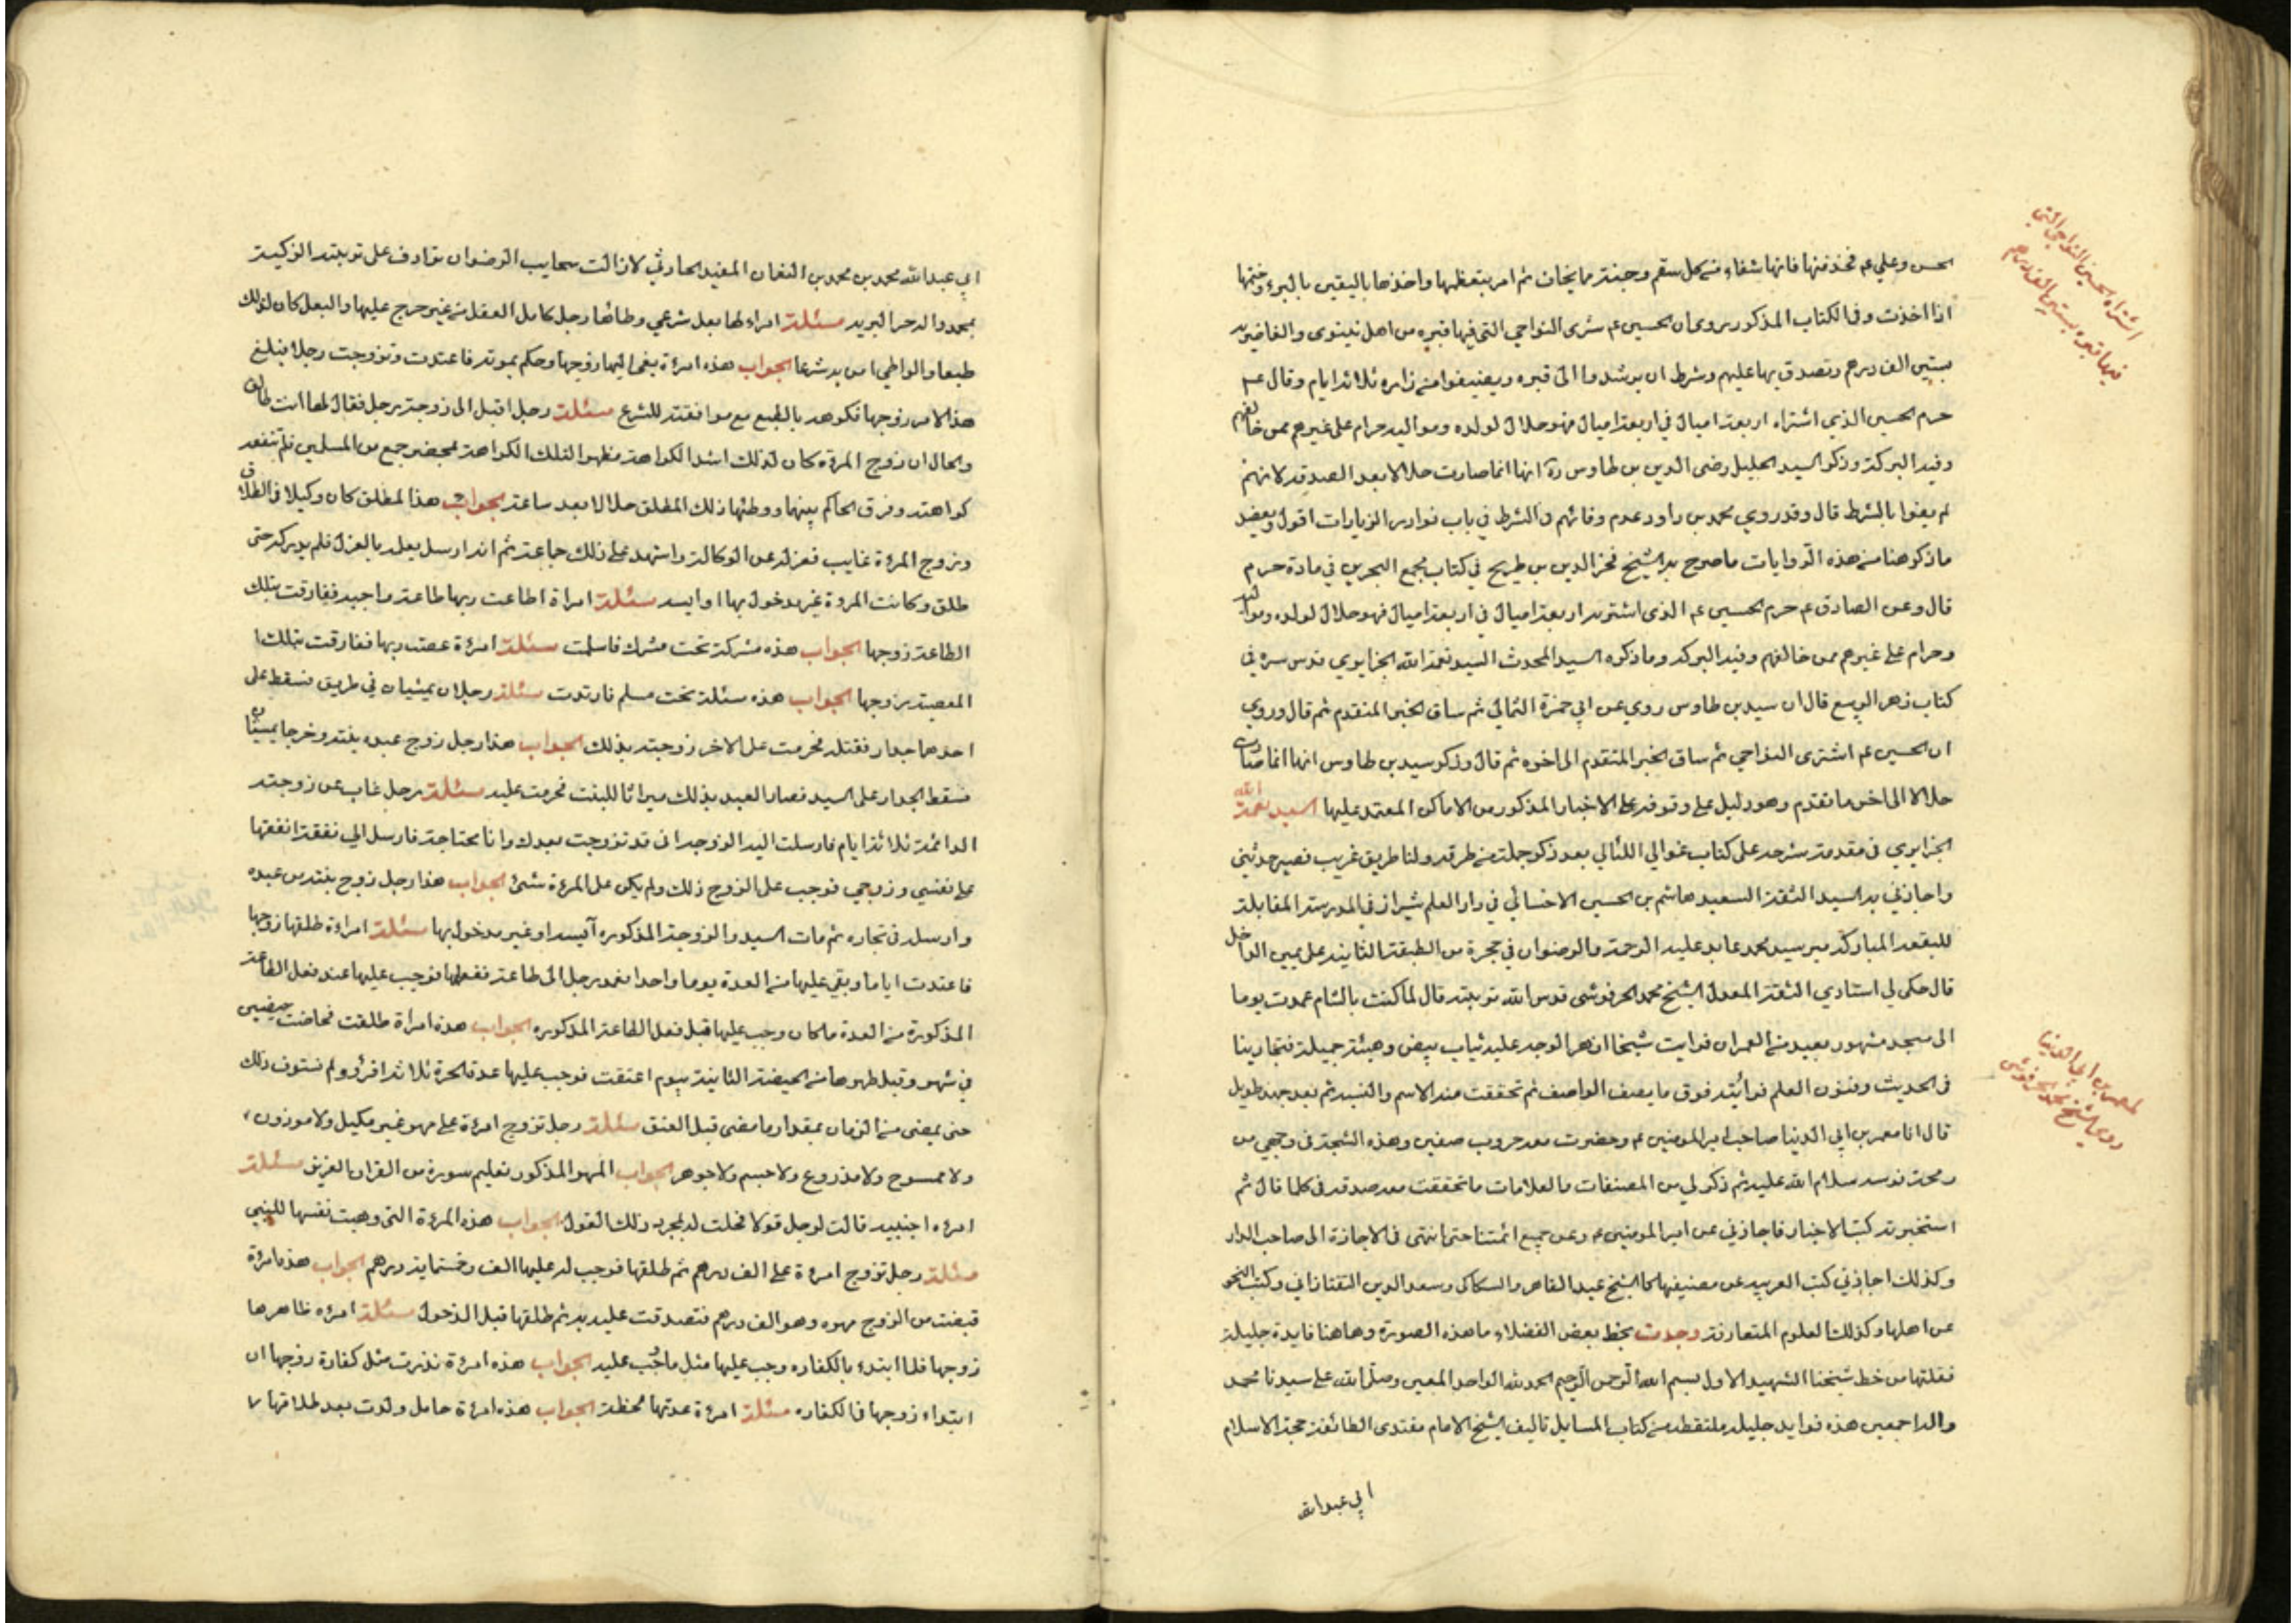 الحسن وعلي ع فخذ منها فانها شفاء من كل سقم وجنة مما يخاف ثم امر بتعظيمها واخذها باليقين بالبرء وختمها
اذا اخذت وفي الكتاب المذكور روى ان الحسين ع شرى النواحي التي فيها قبره من اهل نينوى والغاضريه
بستين الف درهم وتصدق بها عليهم وشرط ان يرشدوا الى قبره ويضيفوا من زاره ثلاثة ايام وقال ع
حرم الحسين الذي اشتراه اربعة اميال في اربعة اميال فهو حلال لولده ومواليه حرام على غيرهم ممن خالفهم
وفيه البركة وذكر السيد الجليل رضى الدين بن طاوس ره انها انما صارت حلالا بعد الصدقه لانهم
لم يفوا بالشرط قال وقد روى محمد بن داود عدم وفائهم بالشرط في باب نوادر الزيارات اقول ويعضد
ما ذكر هنا من هذه الروايات ما صرح به الشيخ فخر الدين بن طريح في كتاب مجمع البحرين في مادة حرم
قال وعن الصادق ع حرم الحسين ع الذى اشتريه اربعة اميال في اربعة اميال فهو حلال لولده ومواليه
وحرام على غيرهم ممن خالفهم وفيه البركه وما ذكره السيد المحدث السيد نعمة الله الجزايري قدس سره في
كتاب زهر الربيع قال ان سيد بن طاوس روي عن ابي حمزة الثمالي ثم ساق الخبر المتقدم ثم قال وروي
ان الحسين ع اشترى النواحي ثم ساق الخبر المتقدم الى اخره ثم قال وذكر سيد بن طاوس انها انما صارت
حلالا الى اخر ما تقدم وهو دليل على وقوفه على الاخبار المذكور من الاماكن المعتمد عليها السيد نعمة الله
الجزايري في مقدمة شرحه على كتاب غوالي اللئالي بعد ذكر جملة من طرقه ولنا طريق غريب قصير حدثني
واجازني به السيد الثقة السعيد هاشم بن الحسين الاحسائي في دار العلم شيراز في المدرسة المقابلة
للبقعه المباركه مير سيد محمد عابد عليه الرحمة والرضوان في حجرة من الطبقة الثانيه على يمين الداخل
قال حكى لي استادي الثقة المعدل الشيخ محمد الحرفوشى قدس الله تربته قال لما كنت بالشام عمدت يوما
الى مسجد مشهور بعيد من العمران فرايت شيخا ازهر الوجه عليه ثياب بيض وهيئة جميلة فتجارينا
في الحديث وفنون العلم فرأيته فوق ما يصف الواصف ثم تحققت منه الاسم والنسبه ثم بعد جهد طويل
قال انا معمر بن ابي الدنيا صاحب امير المومنين ع وحضرت معه حروب صفين وهذه الشجة في وجهي من
رمحة فرسه سلام الله عليه ثم ذكر لي من المصنفات والعلامات ما تحققت معه صدقه في كلما قال ثم
استخبرته كتب الاخبار فاجازني عن امير المومنين ع وعن جميع ائمتنا حتى انتهى في الاجازة الى صاحب الدار
وكذلك اجازني كتب العربيه عن مصنفيها كالشيخ عبد القاهر والسكاكى وسعد الدين التفتازاني وكتب النحو
عن اهلها وكذلك العلوم المتعارفة وجدت بخط بعض الفضلاء ما هذه الصورة وهاهنا فايدة جليلة
نقلتها من خط شيخنا الشهيد الاول بسم الله الرحمن الرحيم الحمد لله الواحد المعين وصلى الله على سيدنا محمد
واله اجمعين هذه فوايد جليله ملتقطه من كتاب المسايل تاليف الشيخ الامام مقتدى الطائفة حجة الاسلام
ابي عبد الله
اشتراء الحسين النواحي التي
فيها قبره بستين الف درهم
معمر بن ابي الدنيا
روى عنه الشيخ محمد الحرفوشى
ابي عبد الله محمد بن محمد بن النعمان المفيد الحارثي لا زالت سحايب الرضوان تترادف على تربته الزكية
بمحمد واله خير البريه مسئلة امراه لها بعل شرعي وطائها رجل كامل العقل من غير حرج عليها والبعل كان لذلك
طبعا والواطي امن به شرعا الجواب هذه امرءة بغى اليها زوجها وحكم بموته فاعتدت وتزوجت رجلا فبلغ
هذا الامر زوجها فكرهه بالطبع مع موافقته للشرع مسئلة رجل اقبل الى زوجة رجل فقال لها انت طالق
والحال ان زوج المرءة كان لذلك اشد الكراهة مظهرا لتلك الكراهة بمحضر جمع من المسلمين فلم تنفعه
كراهته وفرق الحاكم بينهما ووطئها ذلك المطلق حلالا بعد ساعة الجواب هذا المطلق كان وكيلا في الطلاق
وزوج المرءة غايب فعزله عن الوكالة واشهد على ذلك جماعة ثم انه ارسل يعلمه بالعزل فلم يدركه حتى
طلق وكانت المرءة غير مدخول بها او ايسه مسئلة امراة اطاعت ربها طاعة واجبه ففارقت بتلك
الطاعة زوجها الجواب هذه مشركة تحت مشرك فاسلمت مسئلة امرءة عصت ربها ففارقت بتلك
المعصية زوجها الجواب هذه مسئلة تحت مسلم فارتدت مسئلة رجلان يمشيان في طريق فسقط على
احدهما جدار فقتله فحرمت على الاخر زوجته بذلك الجواب هذا رجل زوج عبده بنته وخرجا يمشيان
فسقط الجدار على السيد فصار العبد بذلك ميراثا للبنت فحرمت عليه مسئلة رجل غاب عن زوجته
الدائمة ثلاثة ايام فارسلت اليه الزوجه انى قد تزوجت بعدك وانا محتاجة فارسل الي نفقة انفقها
على نفسي وزوجي فوجب على الزوج ذلك ولم يكن على المرءة شئ الجواب هذا رجل زوج بنته من عبده
وارسله في تجاره ثم مات السيد والزوجة المذكوره آيسه او غير مدخول بها مسئلة امراءة طلقها زوجها
فاعتدت اياما وبقي عليها من العدة يوما واحدا فعمد رجل الى طاعة ففعلها فوجب عليها عند فعل الطاعة
المذكورة من العدة ما كان وجب عليها قبل فعل الطاعة المذكوره الجواب هذه امراة طلقت فحاضت حيضتين
في شهر وقبل طهرها من الحيضة الثانية بيوم اعتقت فوجب عليها عدة الحرة ثلاثة اقرؤ ولم تستوف ذلك
حتى يمضى من الزمان بمقدار ما مضى قبل العتق مسئلة رجل تزوج امرءة على مهر غير مكيل ولا موزون
ولا ممسوح ولا مذروع ولا جسم ولا جوهر الجواب المهر المذكور تعليم سورة من القران العزيز مسئلة
امرءه اجنبيه قالت لرجل قولا فحلت له بمجرد ذلك القول الجواب هذه المرءة التي وهبت نفسها للنبي
مسئلة رجل تزوج امرءة على الف درهم ثم طلقها فوجب له عليها الف وخمسمايه درهم الجواب هذه امرءة
قبضت من الزوج مهره وهو الف درهم فتصدقت عليه به ثم طلقها قبل الدخول مسئلة امرءه ظاهرها
زوجها فلما ابتدء بالكفاره وجب عليها مثل ما وجب عليه الجواب هذه امرءة نذرت مثل كفارة زوجها ان
ابتداء زوجها في الكفاره مسئلة امرءة عدتها لحظة الجواب هذه امرءة حامل ولدت بعد طلاقها